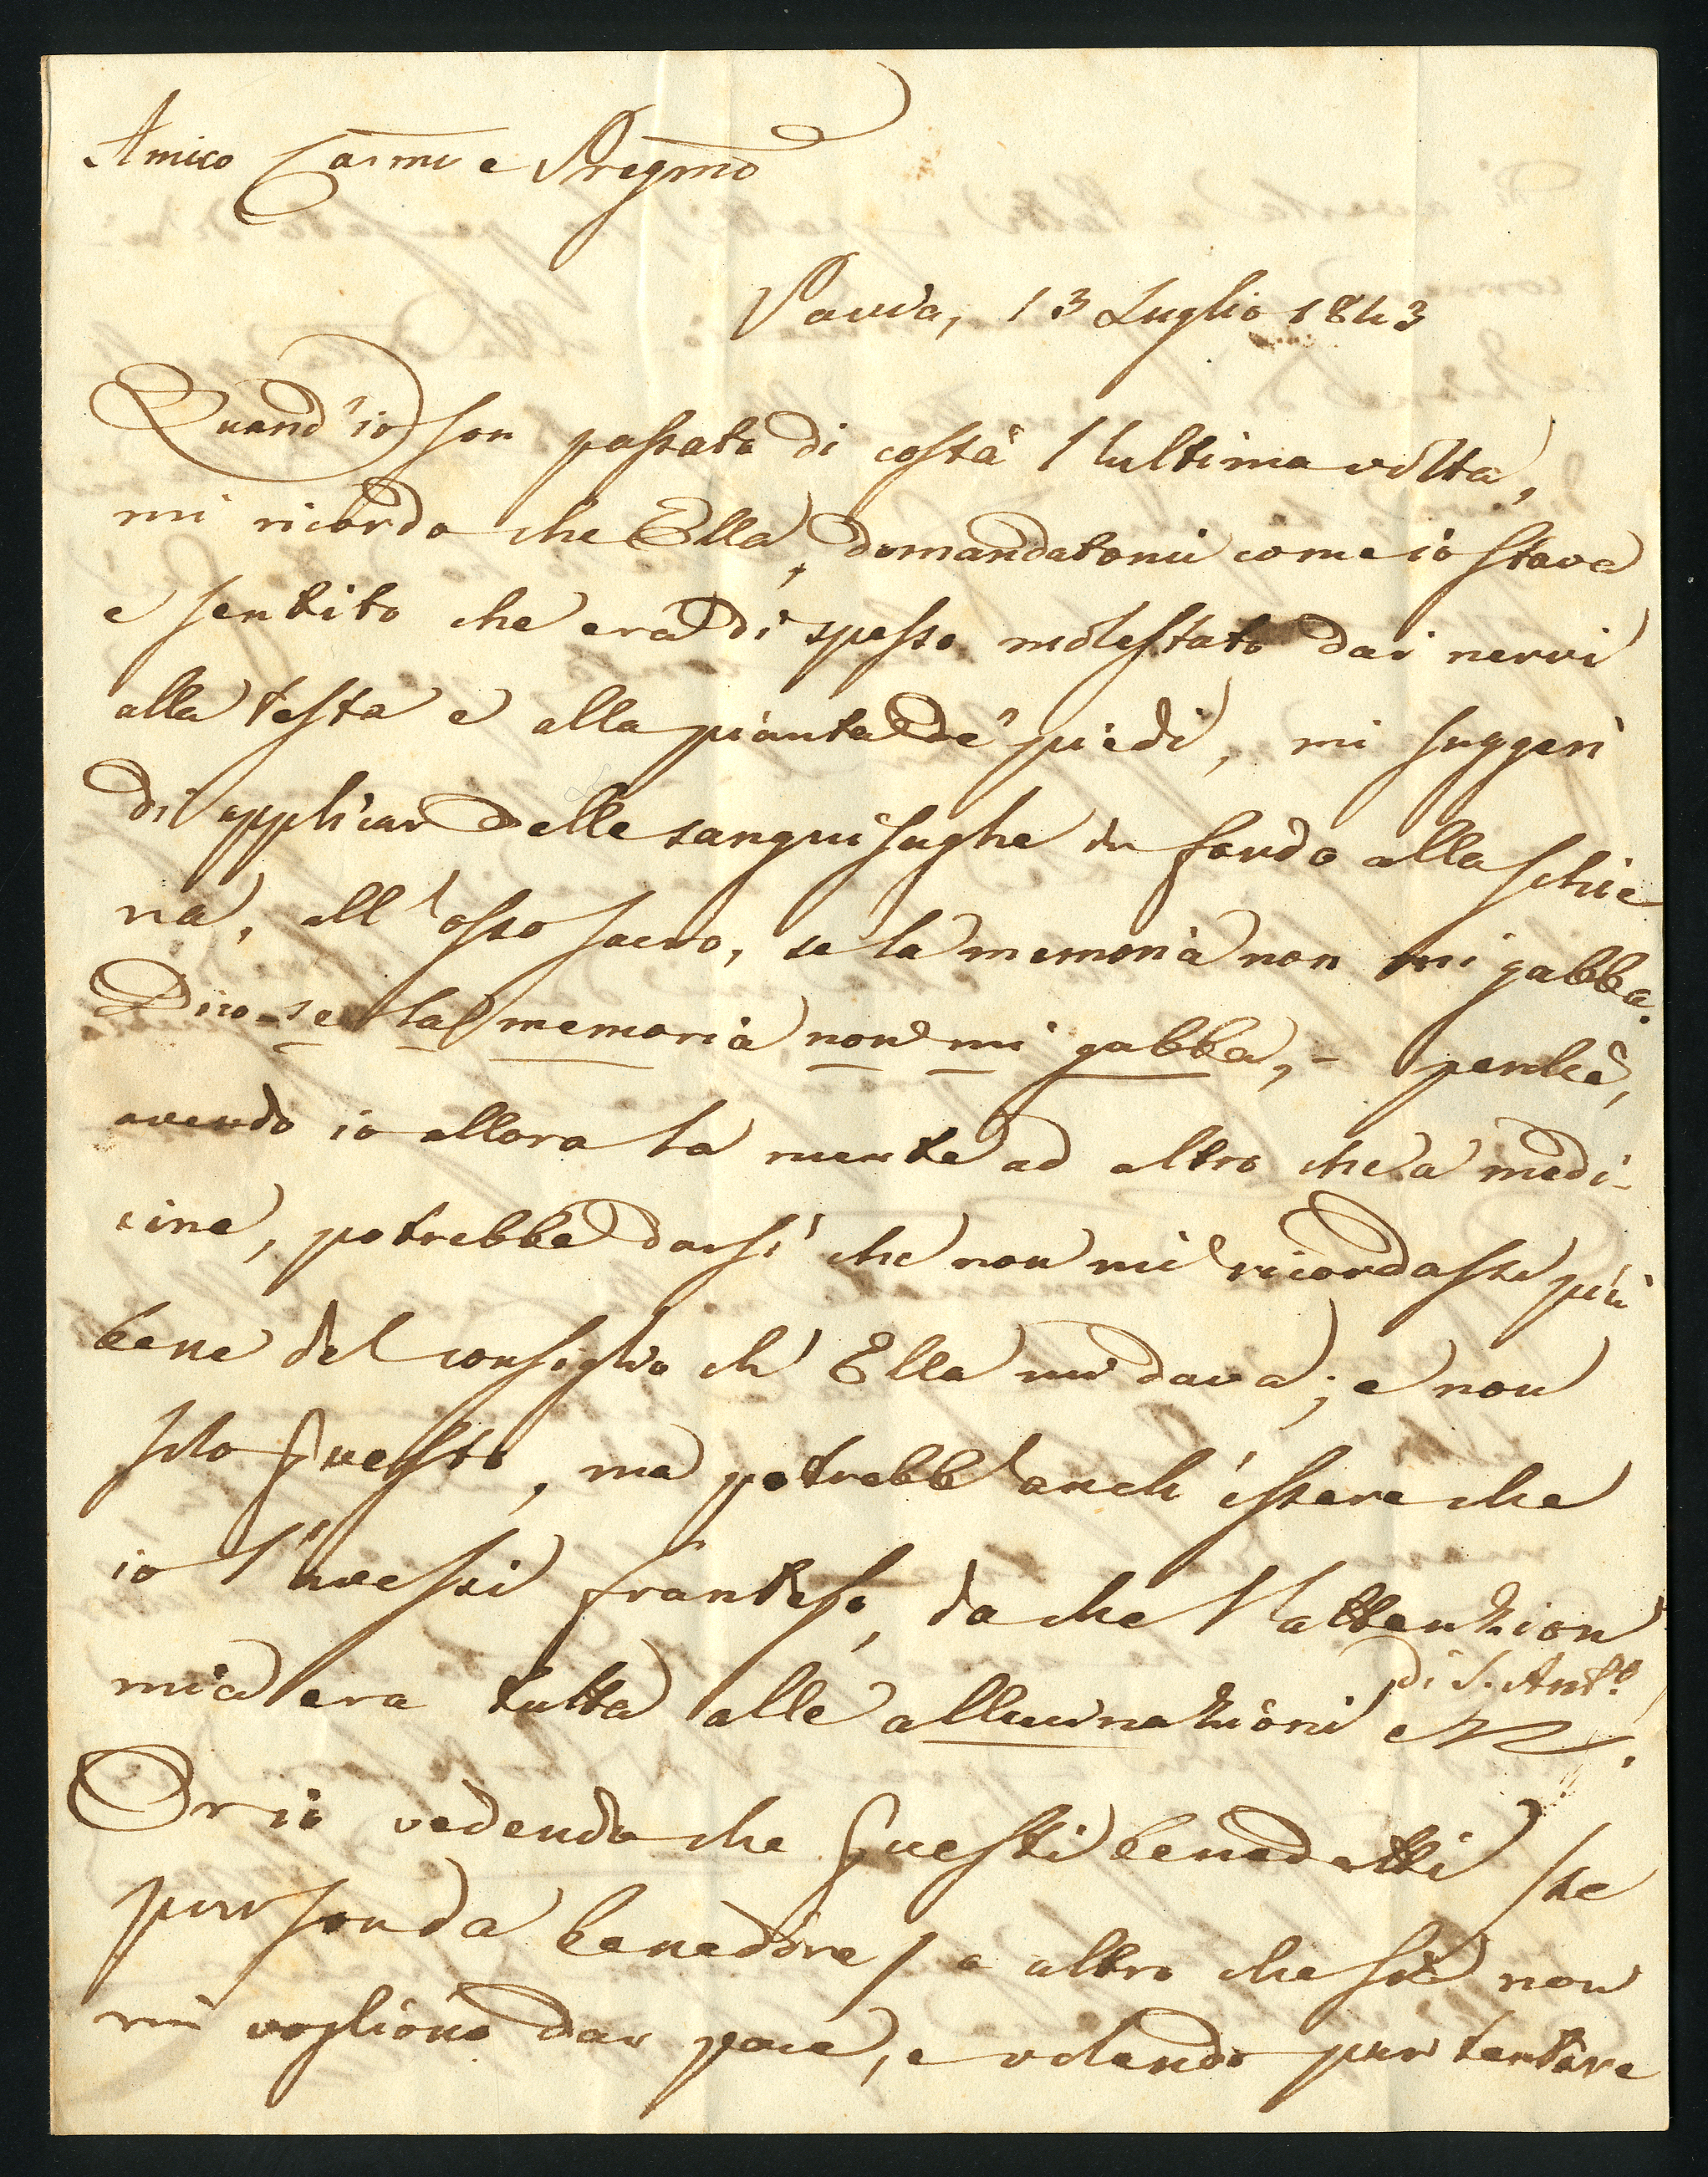 Amico Carmo e Pregmo
Pavia, 13 Luglio 1843
Quand'io son passato di costà l'ultima volta,
mi ricordo che Ella, domandatomi come io stava
e sentito che era di spesso molestato dai nervi
alla testa e alla pianta de' piedi, mi suggerì
di applicar delle sanguisughe in fondo alla schie
na, all'osso sacro, se la memoria non mi gabba.
Dico - se la memoria non mi gabba, - perchè,
avendo io allora la mente ad altro che a medi-
cine, potrebbe darsi che non mi ricordasse più
bene del consiglio ch'Ella mi dava; e non
solo questo, ma potrebb'anch'essere che
io l'avessi franteso, da che l'attenzion
mia era tutta alle allucinazioni di S. Anto.
Or io vedendo che questi benedetti
pur benedire a altro che sia non
mi vogliono dar pace, e volendo pur tentare